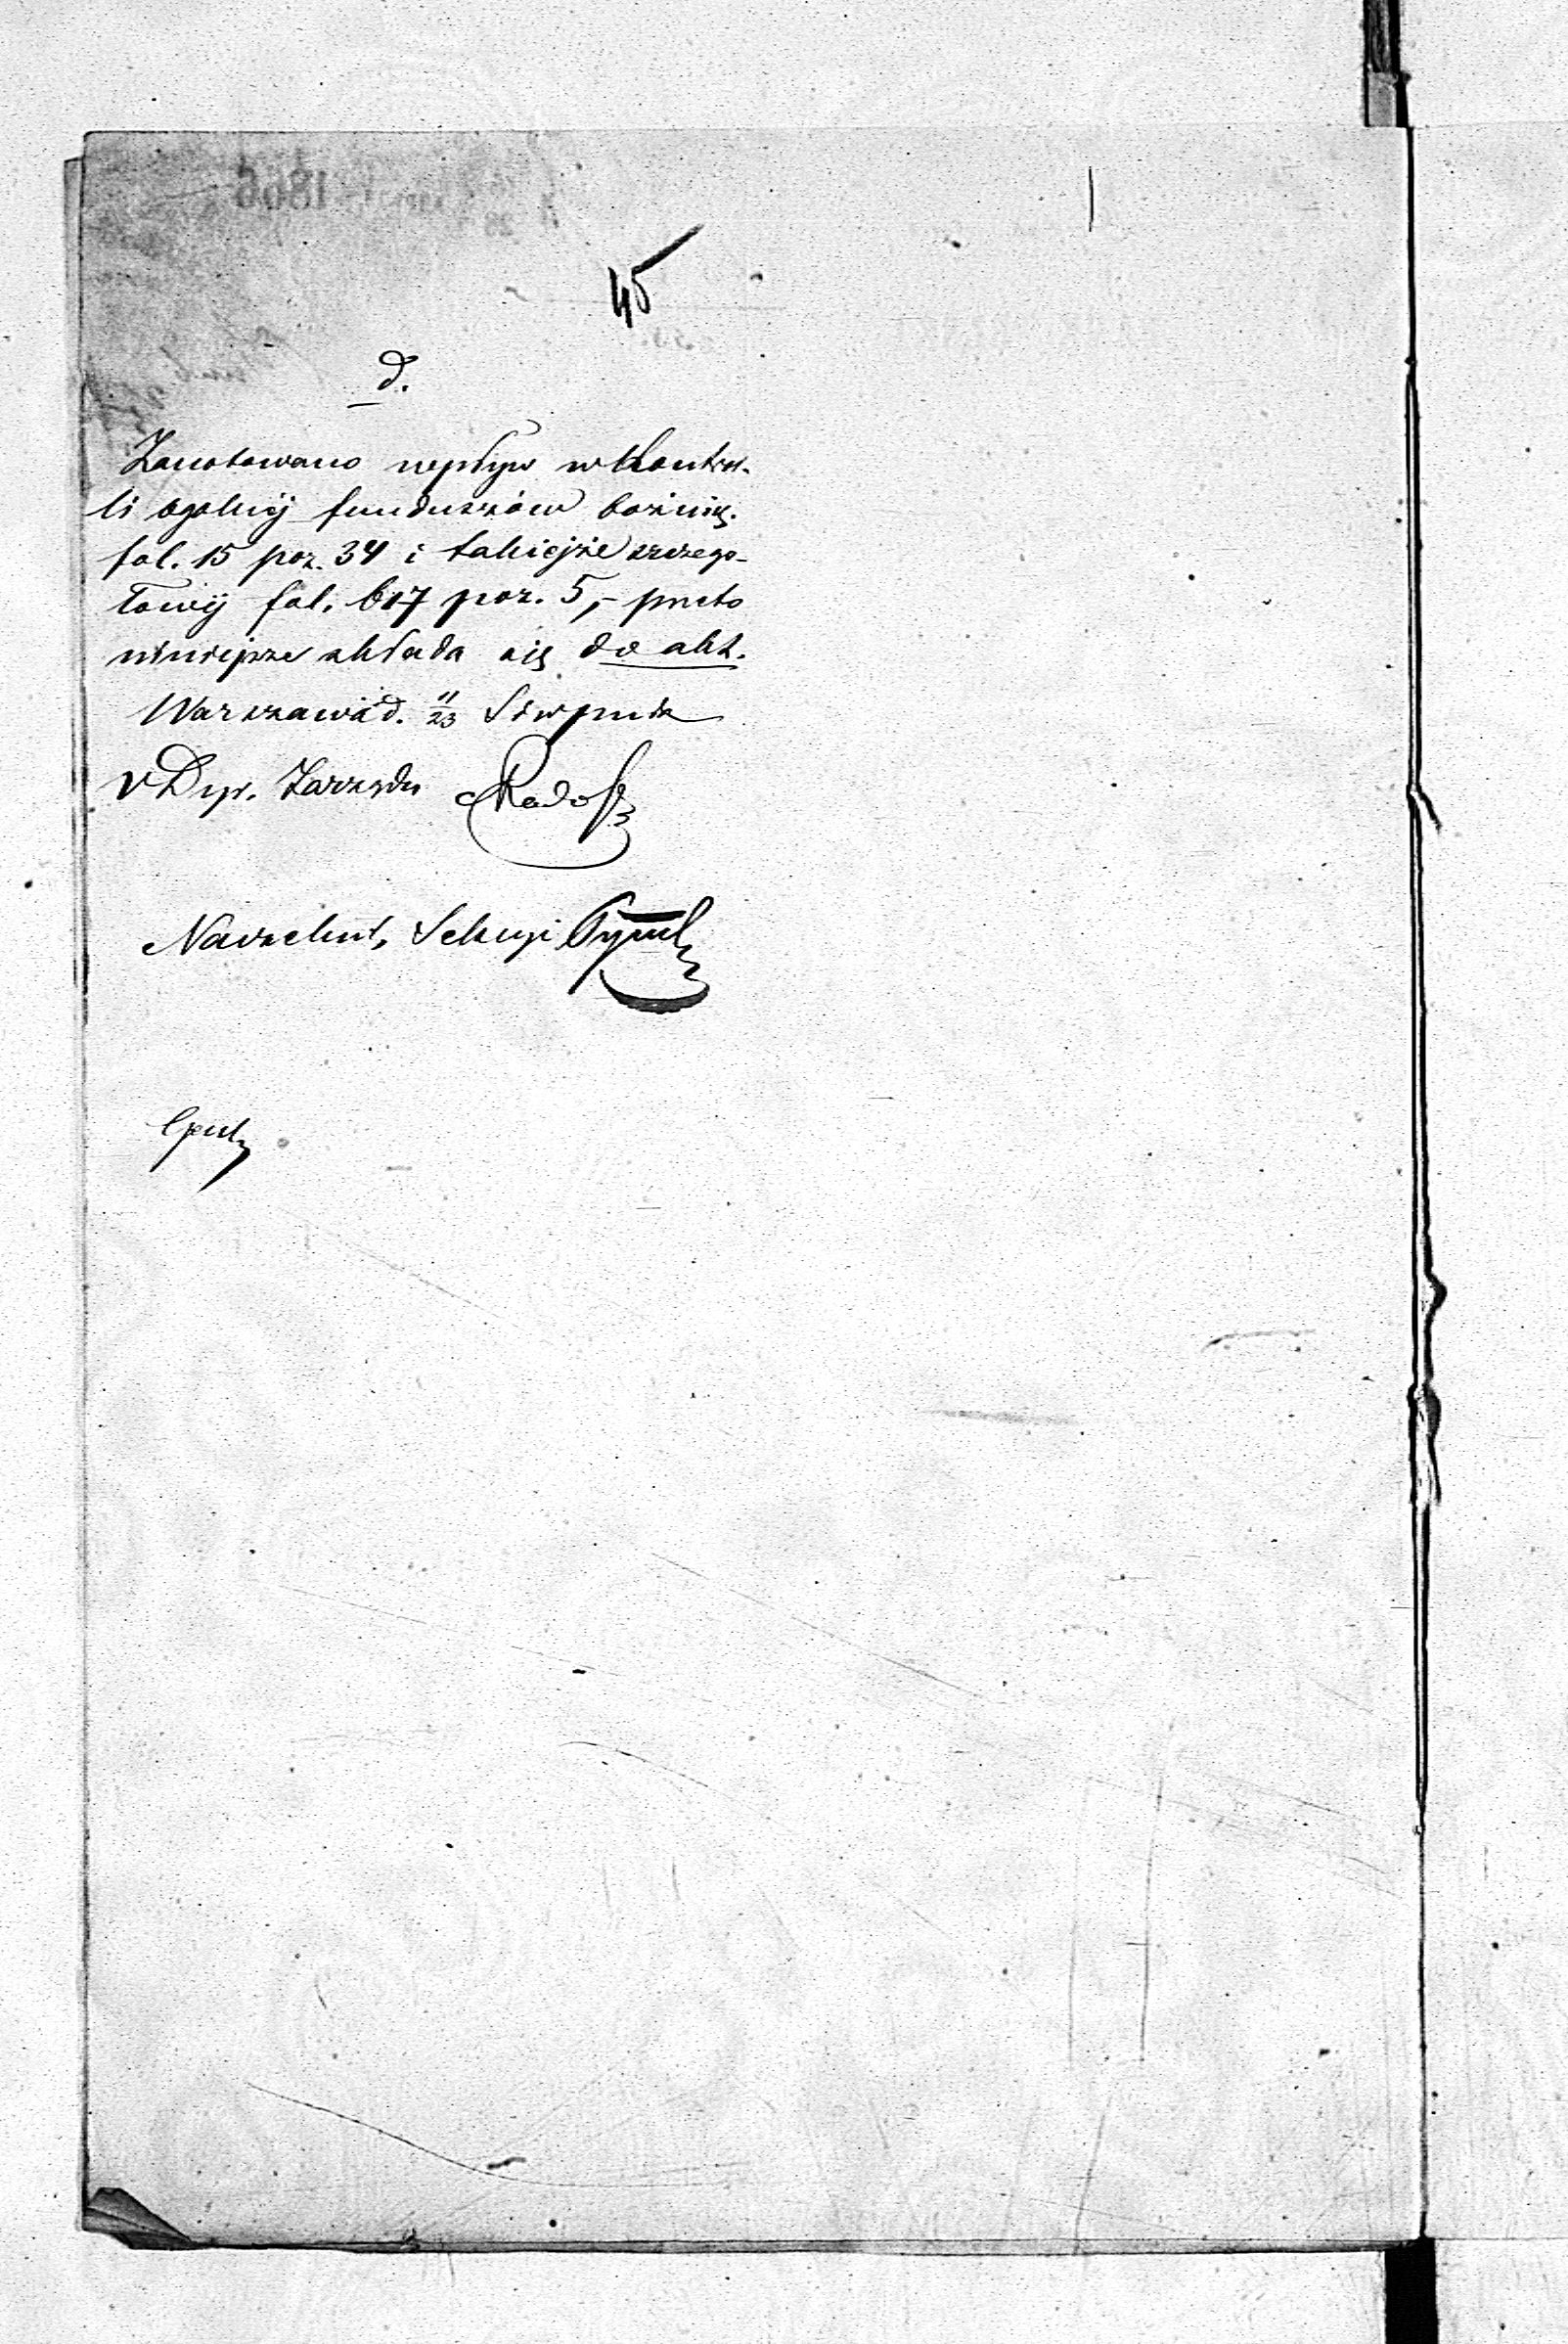 45
d.
Zanotowano wpływ w Kontro-
li ogólnéj funduszów bożnic.
fol. 15 poz. 34 i takiejże szczegó-
łowéj fol. 617 poz. 5,- przeto
niniejsze składa się do akt.
Warszawa d. 11/23 Sierpnia
Dyr. Zarządu
Naczelnik Sekcyi